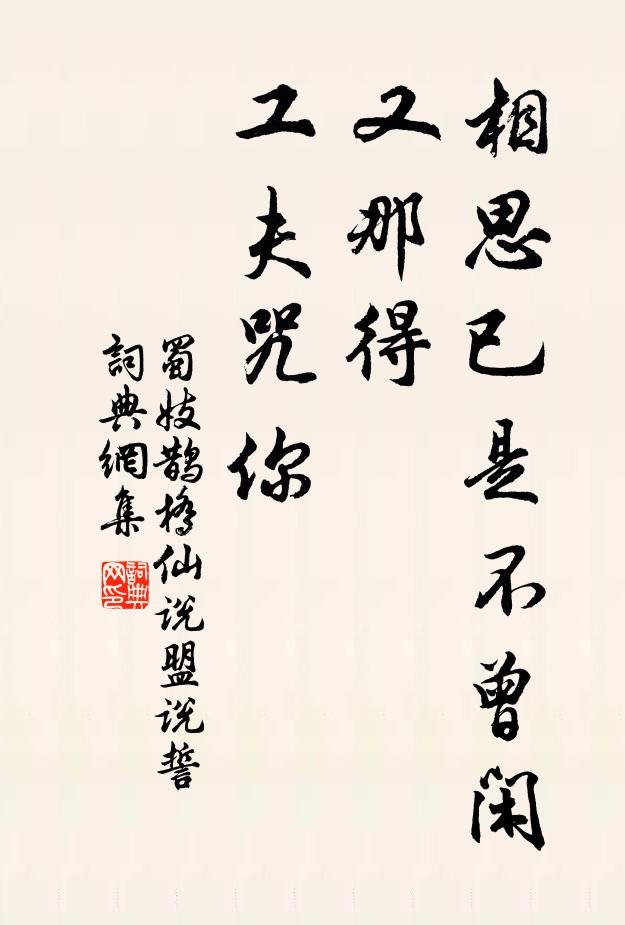 相思已是不曾閑
又那得
工夫咒你
蜀妓鵲橋仙说盟说誓
詞典網集
詞典网印